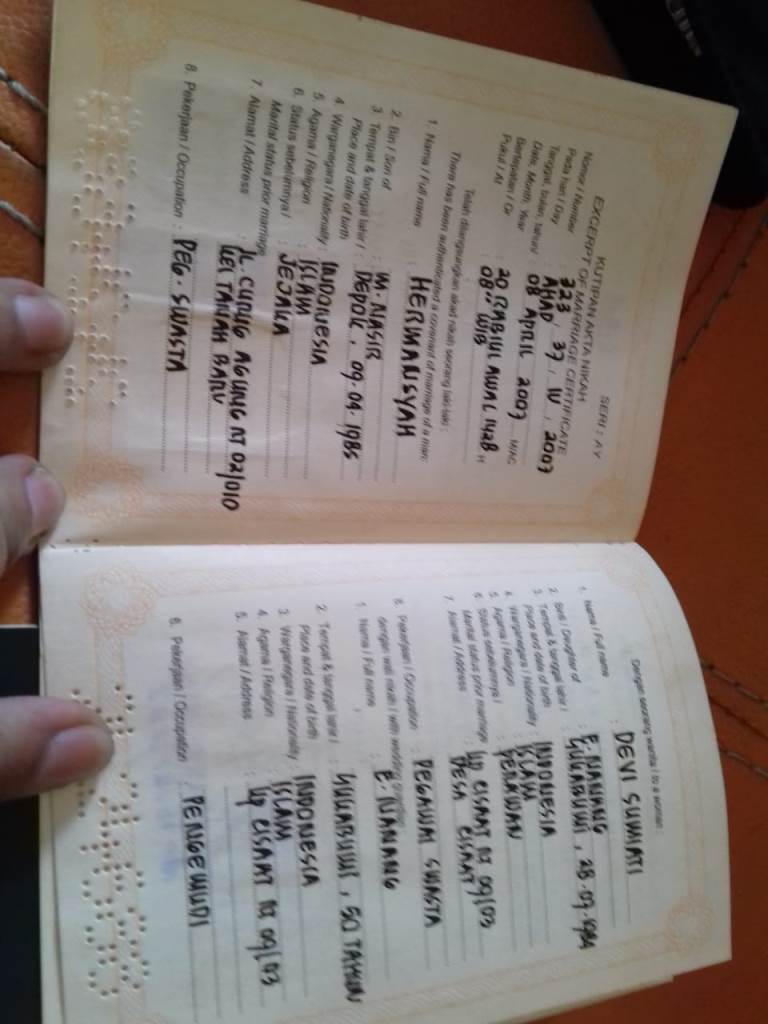 SERI : AY
KUTIPAN AKTA NIKAH
EXCERPT OF MARRIAGE CERTIFICATE
Nomor / Number : 323 / 37 / IV / 2007
Pada hari / Day : AHAD
Tanggal, bulan, tahun / : 08 APRIL 2007 MAC
Date, Month, Year
Bertepatan / Or : 20 RABIUL AWAL 1428 H
Pukul / At : 08 WIB
Telah dilangsungkan akad nikah seorang laki-laki :
There has been authenticated a covenant of marriage of a man:
1. Nama / Full name : HERMANSYAH
2. Bin / Son of : M. NASIR
3. Tempat & tanggal lahir / : DEPOK, 09.04.1985
Place and date of birth
4. Warganegara / Nationality : INDONESIA
5. Agama / Religion : ISLAM
6. Status sebelumnya / : JEJAKA
Marital status prior marriage
7. Alamat / Address : JL. CURUG AGUNG RT 02/010
KEL TANAH BARU
8. Pekerjaan / Occupation : PEG. SWASTA
Dengan seorang wanita / to a woman :
1. Nama / Full name : DEVI SUMIATI
2. Binti / Daughter of : E. NANANG
3. Tempat & tanggal lahir / : SUKABUMI, 28.07.1984
Place and date of birth
4. Warganegara / Nationality : INDONESIA
5. Agama / Religion : ISLAM
6. Status sebelumnya / : PERAWAN
Marital status prior marriage
7. Alamat / Address : KP CISAAT RT 09/03
DESA CISAAT
8. Pekerjaan / Occupation : PEGAWAI SWASTA
dengan wali nikah / with wedding
1. Nama / Full name : E. NANANG
2. Tempat & tanggal lahir / : SUKABUMI, 50 TAHUN
Place and date of birth
3. Warganegara / Nationality : INDONESIA
4. Agama / Religion : ISLAM
5. Alamat / Address : KP CISAAT RT 09/03
6. Pekerjaan / Occupation : PENGEMUDI